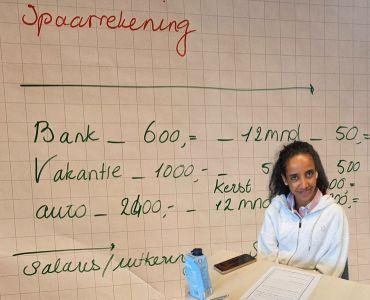 Spaarrekening
Bank – 600,= – 12 mnd – 50,=
Vakantie – 1000,- – 5 500
kerst 00,=
auto – 2400,- – 12 mn 0,=
salaris/uitkerin